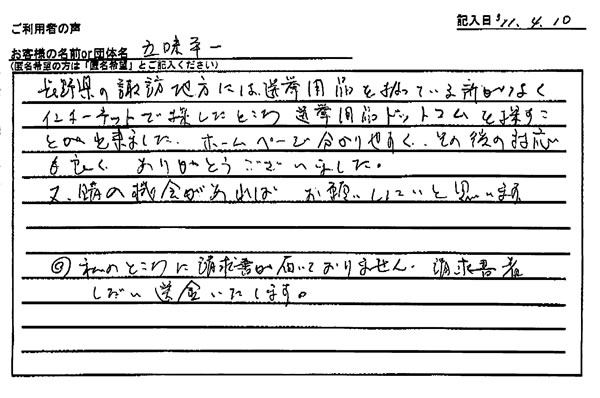 ご利用者の声
記入日 H11.4.10
お客様の名前or団体名 五味平一
(匿名希望の方は「匿名希望」とご記入ください)
長野県の諏訪地方には選挙用品を扱っている所がなく
インターネットで探したところ 選挙用品ドットコムを探すこ
とが出来ました。ホームページ分かりやすく、その後の対応
も良く ありがとうございました。
又、の機会があれば お願いしたいと思います
◎私のところに請求書が届いておりません。請求書着
しだい送金いたします。